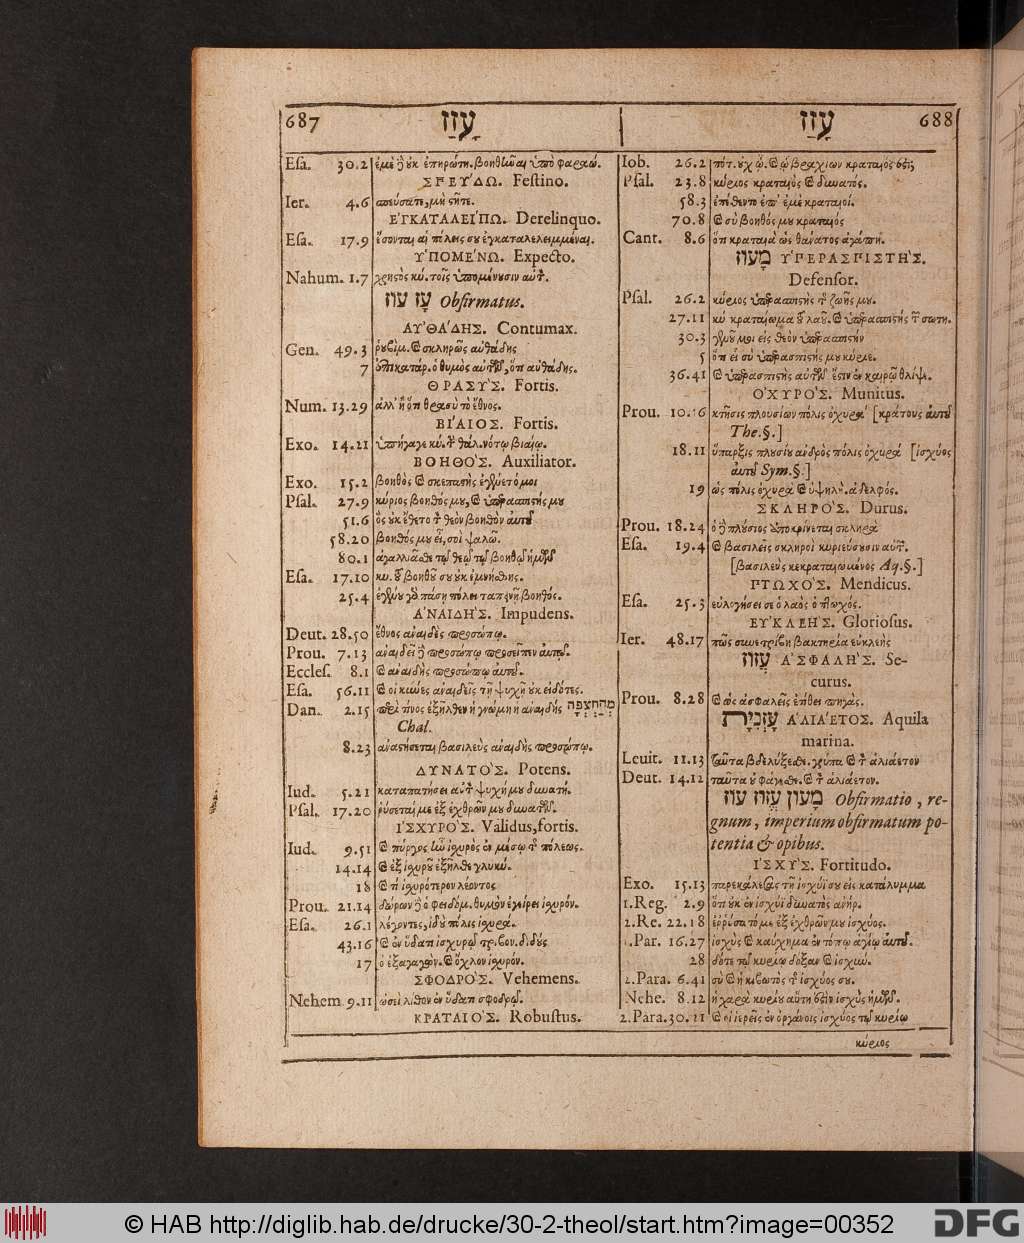 687 עָזַז
Esa. 30.2 ἐμὲ ἢ οὐκ ἐπηρώτη. βοηθῆναι ὑπὸ φαραώ.
ΣΠΕΥΔΩ. Festino.
Ier. 4.6 σπεύσατε, μὴ στῆτε.
ἘΓΚΑΤΑΛΕΙΠΩ. Derelinquo.
Esa. 17.9 ἔσονται αἱ πόλεις σου ἐγκαταλελειμμέναι.
ὙΠΟΜΕΝΩ. Expecto.
Nahum. 1.7 χρηστὸς κύ. τοῖς ὑπομένουσιν αὐτ.
עָז עוז Obfirmatus.
ΑΥΘΑΔΗΣ. Contumax.
Gen. 49.3 ῥουβὶμ. καὶ σκληρῶς αὐθάδης
7 ἐπικατάρ. ὁ θυμὸς αὐτῶν, ὅτι αὐθάδης.
ΘΡΑΣΥΣ. Fortis.
Num. 13.29 ἀλλ' ἢ ὅτι θρασὺ τὸ ἔθνος.
ΒΙΑΙΟΣ. Fortis.
Exo. 14.21 ὑπήγαγε κύ. τ θάλ. νότῳ βιαίῳ.
ΒΟΗΘΟΣ. Auxiliator.
Exo. 15.2 βοηθὸς καὶ σκεπαστὴς ἐγένετό μοι
Psal. 27.9 κύριος βοηθός μου, καὶ ὑπερασπιστής μου
51.6 ὃς οὐκ ἔθετο τ θεὸν βοηθὸν αὐτοῦ
58.20 βοηθός μου εἶ, σοὶ ψαλῶ.
80.1 ἀγαλλιᾶσθε τῷ θεῷ τῷ βοηθῷ ἡμῶν
Esa. 17.10 κυ. τοῦ βοηθοῦ σου οὐκ ἐμνήσθης.
25.4 ἐγένου γὸ πάσῃ πόλει ταπεινῇ βοηθός.
ἈΝΑΙΔΗΣ. Impudens.
Deut. 28.50 ἔθνος ἀναιδὲς προσώπῳ.
Prou. 7.13 ἀναιδεῖ ἢ προσώπῳ προσεῖπεν αὐτῷ.
Eccles. 8.1 καὶ ἀναιδὴς προσώπῳ αὐτοῦ.
Esa. 56.11 καὶ οἱ κύνες ἀναιδεῖς τῇ ψυχῇ οὐκ εἰδότες.
Dan. 2.15 περὶ τίνος ἐξῆλθεν ἡ γνώμη ἡ ἀναιδής מְהַחְצְפָה
Chal.
8.23 ἀναστήσεται βασιλεὺς ἀναιδὴς προσώπῳ.
ΔΥΝΑΤΟΣ. Potens.
Iud. 5.21 καταπατήσει αὐτ ψυχή μου δυνατή.
Psal. 17.20 ῥύσεταί με ἐξ ἐχθρῶν μου δυνατῶν.
ἸΣΧΥΡΟΣ. Validus, fortis.
Iud. 9.51 καὶ πύργος ἦν ἰσχυρὸς ἐν μέσῳ τ πόλεως.
14.14 καὶ ἐξ ἰσχυροῦ ἐξῆλθε γλυκύ.
18 καὶ τί ἰσχυρότερον λέοντος
Prou. 21.14 δώρων ἢ ὁ φειδόμ. θυμὸν ἐγείρει ἰσχυρόν.
Esa. 26.1 λέγοντες, ἰδοὺ πόλις ἰσχυρά.
43.16 καὶ ἐν ὕδατι ἰσχυρῷ τρίβον. διδούς
17 ὁ ἐξαγαγὼν. καὶ ὄχλον ἰσχυρόν.
ΣΦΟΔΡΟΣ. Vehemens.
Nehem 9.11 ὡσεὶ λίθον ἐν ὕδατι σφοδρῷ.
ΚΡΑΤΑΙΟΣ. Robustus.
עָזַז 688
Iob. 26.2 πότ. οὐχ ᾧ. καὶ ᾧ βραχίων κραταιός ἐστι;
Psal. 23.8 κύριος κραταιὸς καὶ δυνατός.
58.3 ἐπέθεντο ἐπ' ἐμὲ κραταιοί.
70.8 καὶ σὺ βοηθός μου κραταιός
Cant. 8.6 ὅτι κραταιὰ ὡς θάνατος ἀγάπη.
מָעוז ὙΠΕΡΑΣΠΙΣΤΗΣ.
Defensor.
Psal. 26.2 κύριος ὑπερασπιστὴς τ ζωῆς μου.
27.11 κύ κραταίωμα τοῦ λαοῦ. καὶ ὑπερασπιστὴς τ σωτη.
30.3 γενοῦ μοι εἰς θεὸν ὑπερασπιστὴν
5 ὅτι εἶ σὺ ὑπερασπιστής μου κύριε.
36.41 καὶ ὑπερασπιστὴς αὐτῶν ἔστιν ἐν καιρῷ θλίψε.
ὈΧΥΡΟΣ. Munitus.
Prou. 10.16 κτῆσις πλουσίων πόλις ὀχυρά [κράτους αὐτοῦ
The.§.]
18.11 ὕπαρξις πλουσίου ἀνδρὸς πόλις ὀχυρά [ἰσχύος
αὐτοῦ Sym.§.]
19 ὡς πόλις ὀχυρὰ καὶ ὑψηλὴ. ἀδελφός.
ΣΚΛΗΡΟΣ. Durus.
Prou. 18.24 ὁ ἢ πλούσιος ἀποκρίνεται σκληρά
Esa. 19.4 καὶ βασιλεῖς σκληροὶ κυριεύσουσιν αὐτ.
[βασιλεὺς κεκραταιωμένος Aq.§.]
ΠΤΩΧΟΣ. Mendicus.
Esa. 25.3 εὐλογήσει σε ὁ λαὸς ὁ πτωχός.
ΕΥΚΛΕΗΣ. Gloriosus.
Ier. 48.17 πῶς συνετρίβη βακτηρία εὐκλεής
עֱזוּז ἈΣΦΑΛΗΣ. Se-
curus.
Prou. 8.28 καὶ ὡς ἀσφαλεῖς ἐτίθει πηγάς.
עָזְנִיָּה ἉΛΙΑΙΕΤΟΣ. Aquila
marina.
Leuit. 11.13 ταῦτα βδελύξεσθε. γύπα καὶ τ ἁλιαίετον
Deut. 14.12 ταῦτα οὐ φάγεσθε. καὶ τ ἁλιαίετον.
מָעוֹן עֱזוּז עוז Obfirmatio, re-
gnum, imperium obfirmatum po-
tentia & opibus.
ἸΣΧΥΣ. Fortitudo.
Exo. 15.13 παρεκάλεσας τῇ ἰσχύϊ σου εἰς κατάλυμμα
1.Reg. 2.9 ὅτι οὐκ ἐν ἰσχύϊ δυνατὸς ἀνήρ.
2.Re. 22.18 ἐῤῥύσατό με ἐξ ἐχθρῶν μου ἰσχύος.
1.Par. 16.27 ἰσχὺς καὶ καύχημα ἐν τόπῳ ἁγίῳ αὐτοῦ.
28 δότε τῷ κυρίῳ δόξαν καὶ ἰσχύν.
2.Para. 6.41 σὺ καὶ ἡ κιβωτὸς τ ἰσχύος σου.
Nehe. 8.12 ἡ χαρὰ κυρίου αὕτη ἐστὶν ἰσχὺς ἡμῶν.
2.Para. 30.21 καὶ οἱ ἱερεῖς ἐν ὀργάνοις ἰσχύος τῷ κυρίῳ
κύριος
© HAB http://diglib.hab.de/drucke/30-2-theol/start.htm?image=00352
DFG